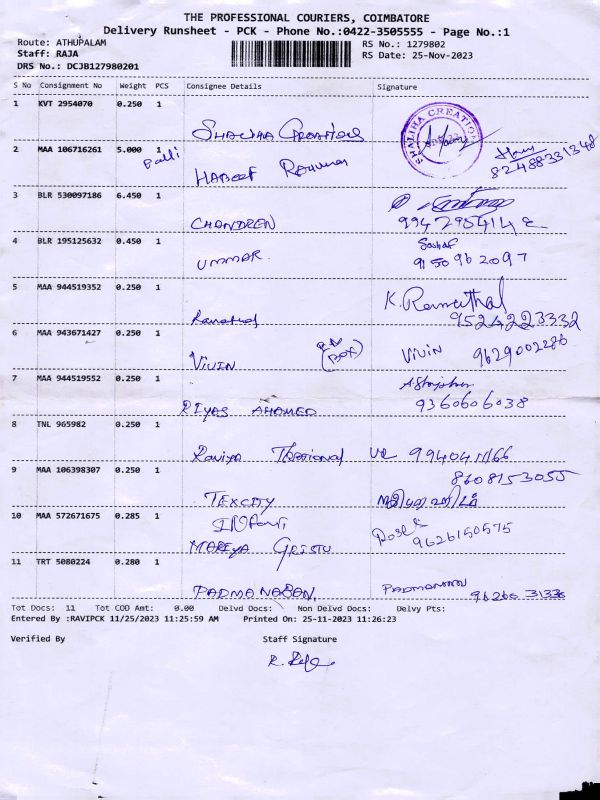 THE PROFESSIONAL COURIERS, COIMBATORE
Delivery Runsheet - PCK - Phone No.:0422-3505555 - Page No.:1
Route: ATHUPALAM RS No.: 1279802
Staff: RAJA RS Date: 25-Nov-2023
DRS No.: DCJB127980201
S No Consignment No Weight PCS Consignee Details Signature
1 KVT 2954070 0.250 1
SHALIHA CREATIONS
SHALIHA CREATION
2 MAA 106716261 5.000 1
Balli HABEEF Rahuman 82488331348
3 BLR 530097186 6.450 1
CHANDREN
4 BLR 195125632 0.450 1
UMMAR 9150962097
5 MAA 944519352 0.250 1
K. Ramathal
9524223332
6 MAA 943671427 0.250 1
VIVIN (BOX) VIVIN 9629002286
7 MAA 944519552 0.250 1
RIYAS AHAMED 9360606038
8 TNL 965982 0.250 1
9 MAA 106398307 0.250 1 8608153055
TEXCITY
10 MAA 572671675 0.285 1
MARIYA CRISTU 9626150575
11 TRT 5080224 0.280 1
PADMANABAN PADMANABAN
Tot Docs: 11 Tot COD Amt: 0.00 Delvd Docs: Non Delvd Docs: Delvy Pts:
Entered By :RAVIPCK 11/25/2023 11:25:59 AM Printed On: 25-11-2023 11:26:23
Verified By Staff Signature